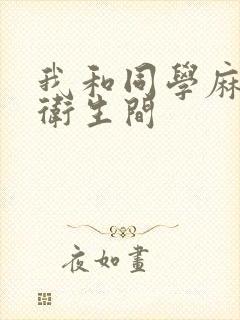 我和同學麻
衛生間
夜如畫